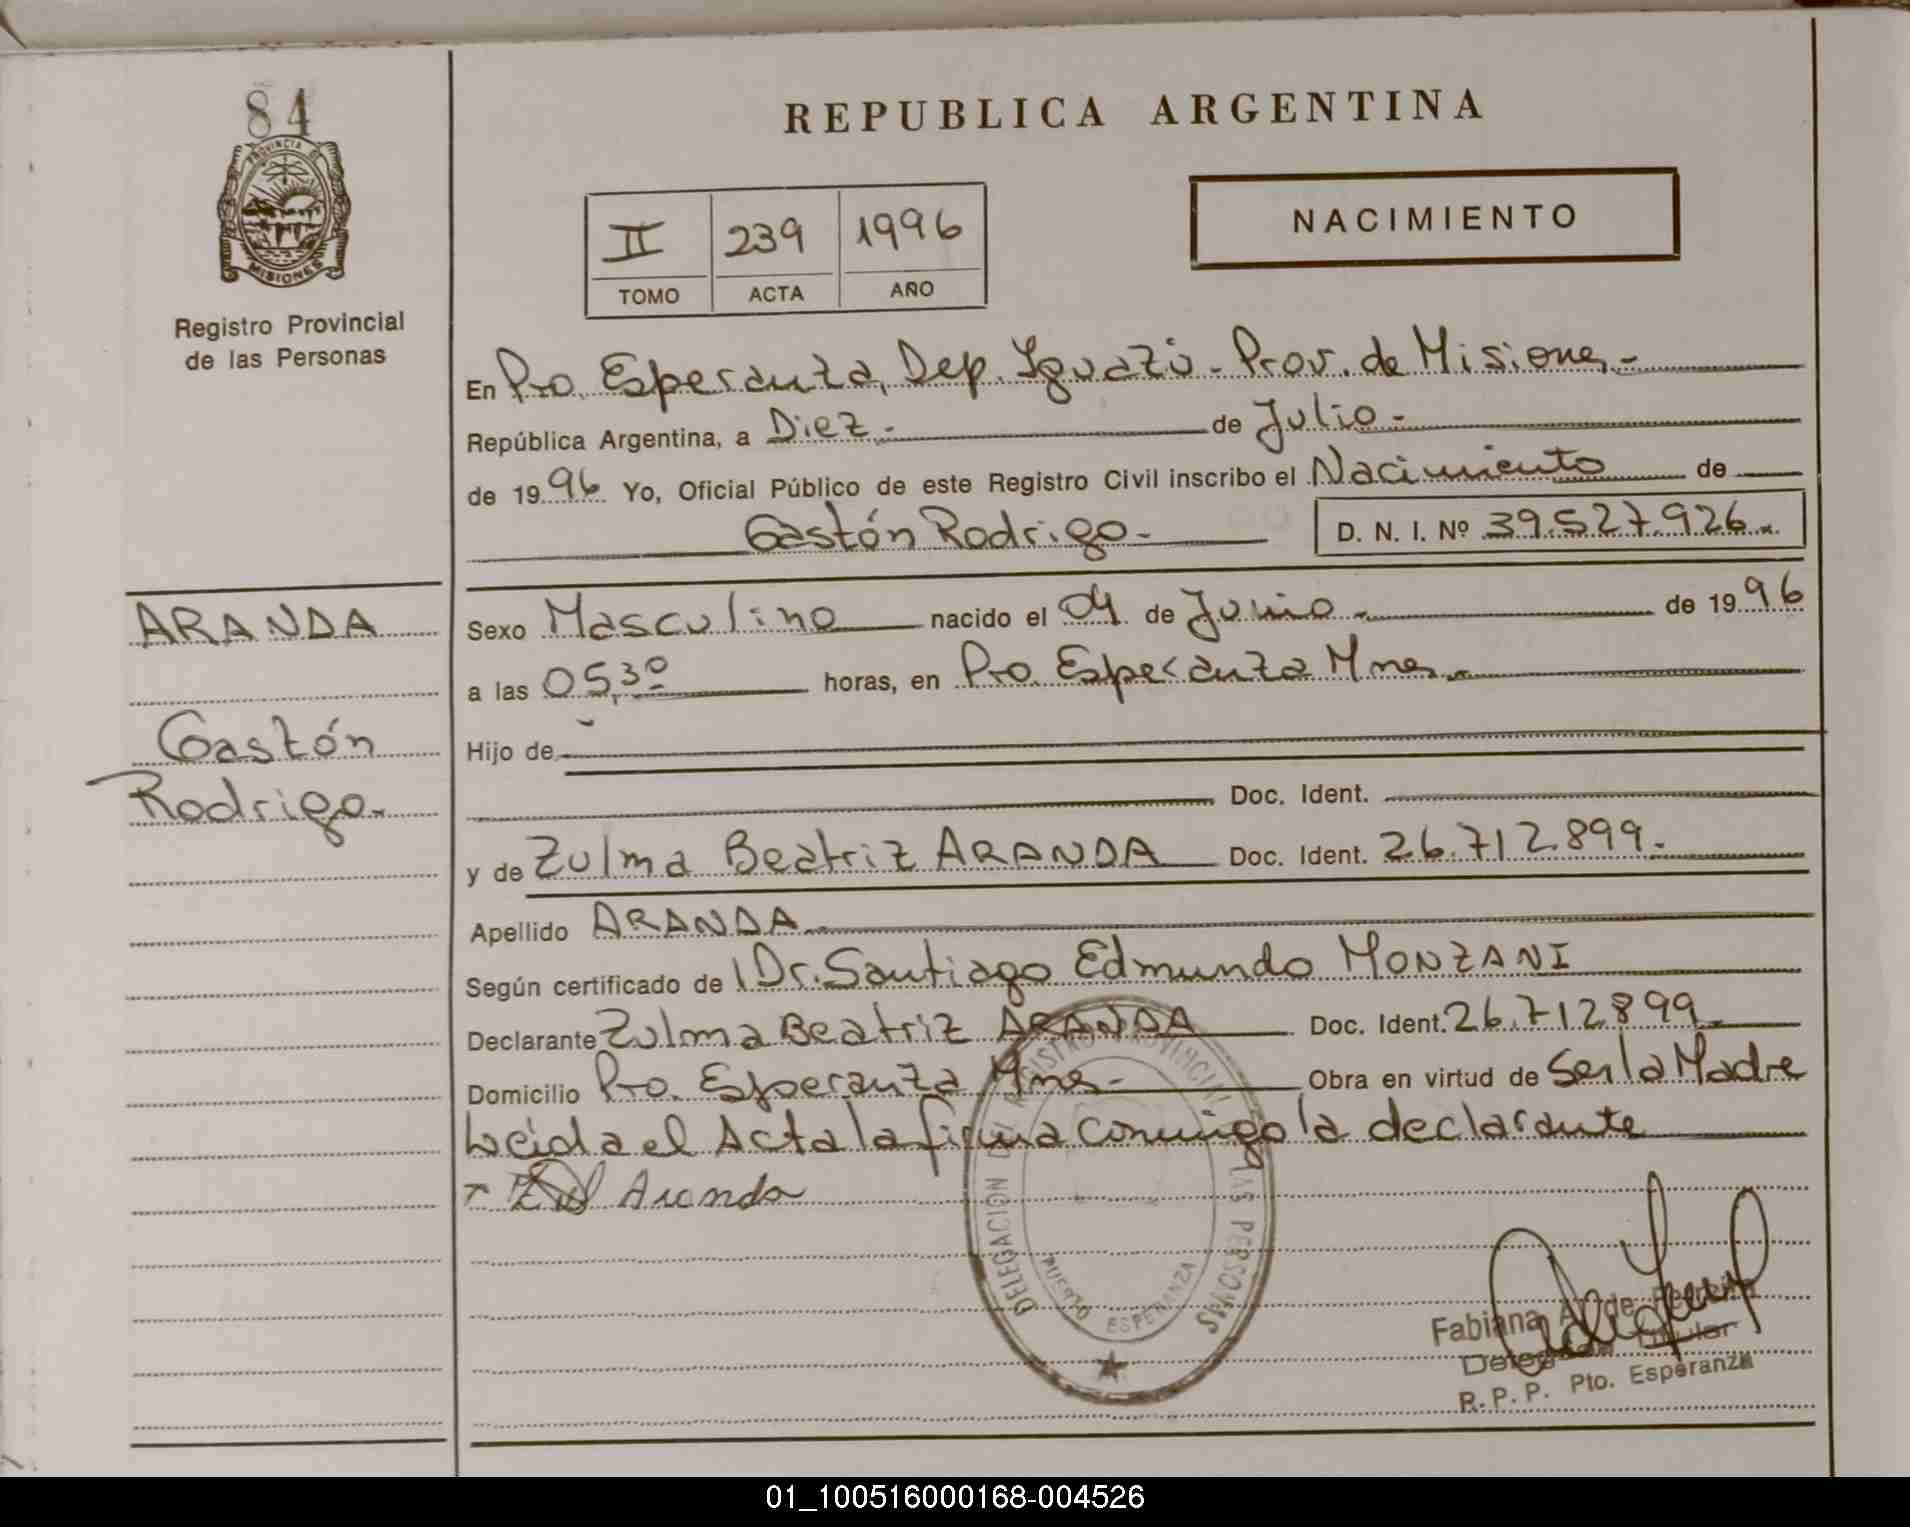 84
PROVINCIA DE
MISIONES
Registro Provincial
de las Personas
REPUBLICA ARGENTINA
NACIMIENTO
II 239 1996
TOMO ACTA AÑO
En Pto. Esperanza, Dep. Iguazú - Prov. de Misiones -
República Argentina, a Diez.- de Julio.-
de 1996 Yo, Oficial Público de este Registro Civil inscribo el Nacimiento de
Gastón Rodrigo.-
D. N. I. Nº 39.527.926.-
ARANDA
Gastón
Rodrigo.-
Sexo Masculino nacido el 04 de Junio.- de 1996
a las 05,30 horas, en Pto. Esperanza Mnes.-
Hijo de
Doc. Ident.
y de Zulma Beatriz ARANDA Doc. Ident. 26.712.899.-
Apellido ARANDA
Según certificado de Dr. Santiago Edmundo MONZANI
Declarante Zulma Beatriz ARANDA Doc. Ident. 26.712899.
Domicilio Pto. Esperanza Mnes.- Obra en virtud de Ser la Madre
Leída el Acta la firma conmigo la declarante
Aranda
DELEGACION DEL REGISTRO PROVINCIAL DE LAS PERSONAS
PUERTO ESPERANZA
Fabiana A. de Ferreira
Delegada Titular
R. P. P. Pto. Esperanza
01_100516000168-004526